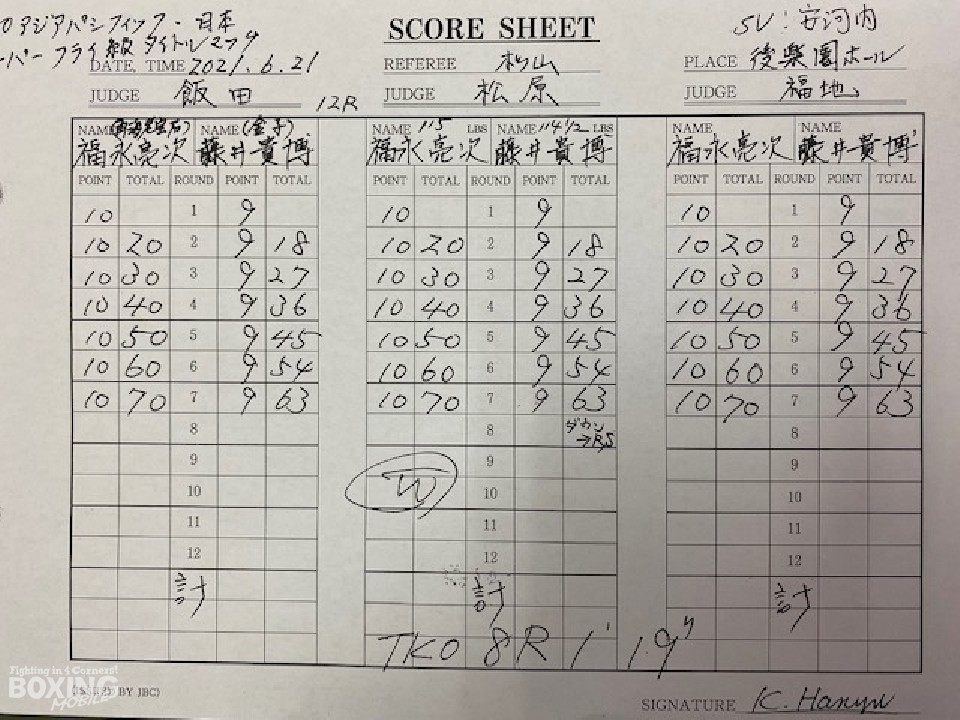 Oアジアパシフィック・日本
ーパーフライ級タイトルマッチ
SCORE SHEET
SV:安河内
DATE, TIME 2021.6.21
REFEREE 松山
PLACE 後楽園ホール
JUDGE 飯田
12R
JUDGE 松原
JUDGE 福地
NAME NAME (金子)
NAME 115 LBS NAME 114 1/2 LBS
NAME NAME
福永亮次 藤井貴博
福永亮次 藤井貴博
福永亮次 藤井貴博
POINT TOTAL ROUND POINT TOTAL POINT TOTAL ROUND POINT TOTAL POINT TOTAL ROUND POINT TOTAL
10 1 9 10 1 9 10 1 9
10 20 2 9 18 10 20 2 9 18 10 20 2 9 18
10 30 3 9 27 10 30 3 9 27 10 30 3 9 27
10 40 4 9 36 10 40 4 9 36 10 40 4 9 36
10 50 5 9 45 10 50 5 9 45 10 50 5 9 45
10 60 6 9 54 10 60 6 9 54 10 60 6 9 54
10 70 7 9 63 10 70 7 9 63 10 70 7 9 63
8 8 ダウン 8
→RS
9 9 9
10 W 10 10
11 11 11
12 12 12
計 計 計
TKO 8R 1' 19"
Fighting in 4 Corners!
BOXING
MOBILE
(ISSUED BY JBC)
SIGNATURE K. Hanyu